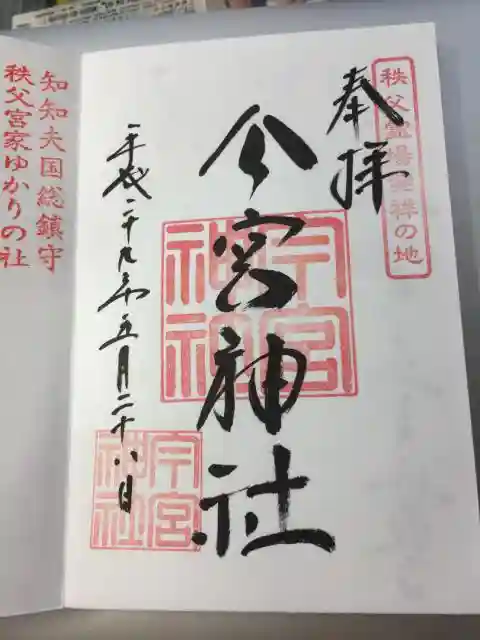 奉拝
秩父霊場発祥の地
今宮神社
今宮
神社
平成二十九年五月二十八日
今宮
神社
知知夫国総鎮守
秩父宮家ゆかりの社